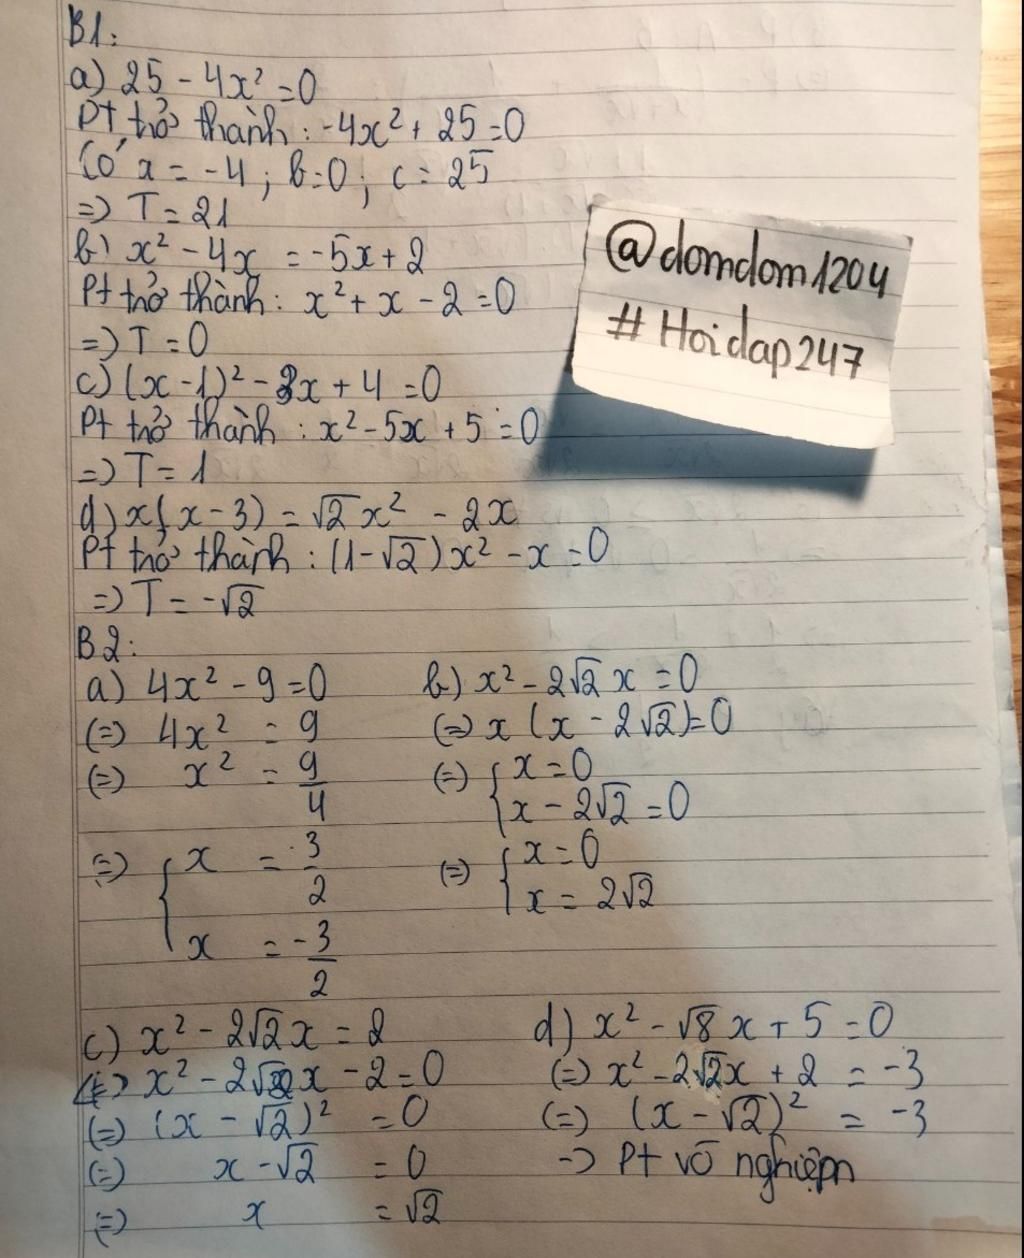 B1:
a) 25 - 4x² = 0
Pt trở thành: -4x² + 25 = 0
Có a = -4; b=0; c = 25
=> T = 21
b) x² - 4x = -5x + 2
Pt trở thành: x² + x - 2 = 0
=> T = 0
c) (x - 1)² - 3x + 4 = 0
Pt trở thành: x² - 5x + 5 = 0
=> T = 1
d) x(x - 3) = √2x² - 2x
Pt trở thành: (1-√2)x² - x = 0
=> T = -√2
@domdom1204
# Hoidap247
B2:
a) 4x² - 9 = 0
(=) 4x² = 9
(=) x² = 9/4
=) { x = 3/2
x = -3/2
b) x² - 2√2 x = 0
(=) x (x - 2√2) = 0
(=) { x = 0
x - 2√2 = 0
(=) { x = 0
x = 2√2
c) x² - 2√2x = 2
(=) x² - 2√2x - 2 = 0
(=) (x - √2)² = 0
(=) x - √2 = 0
=) x = √2
d) x² - √8x + 5 = 0
(=) x² - 2√2x + 2 = -3
(=) (x - √2)² = -3
-> Pt vô nghiệm